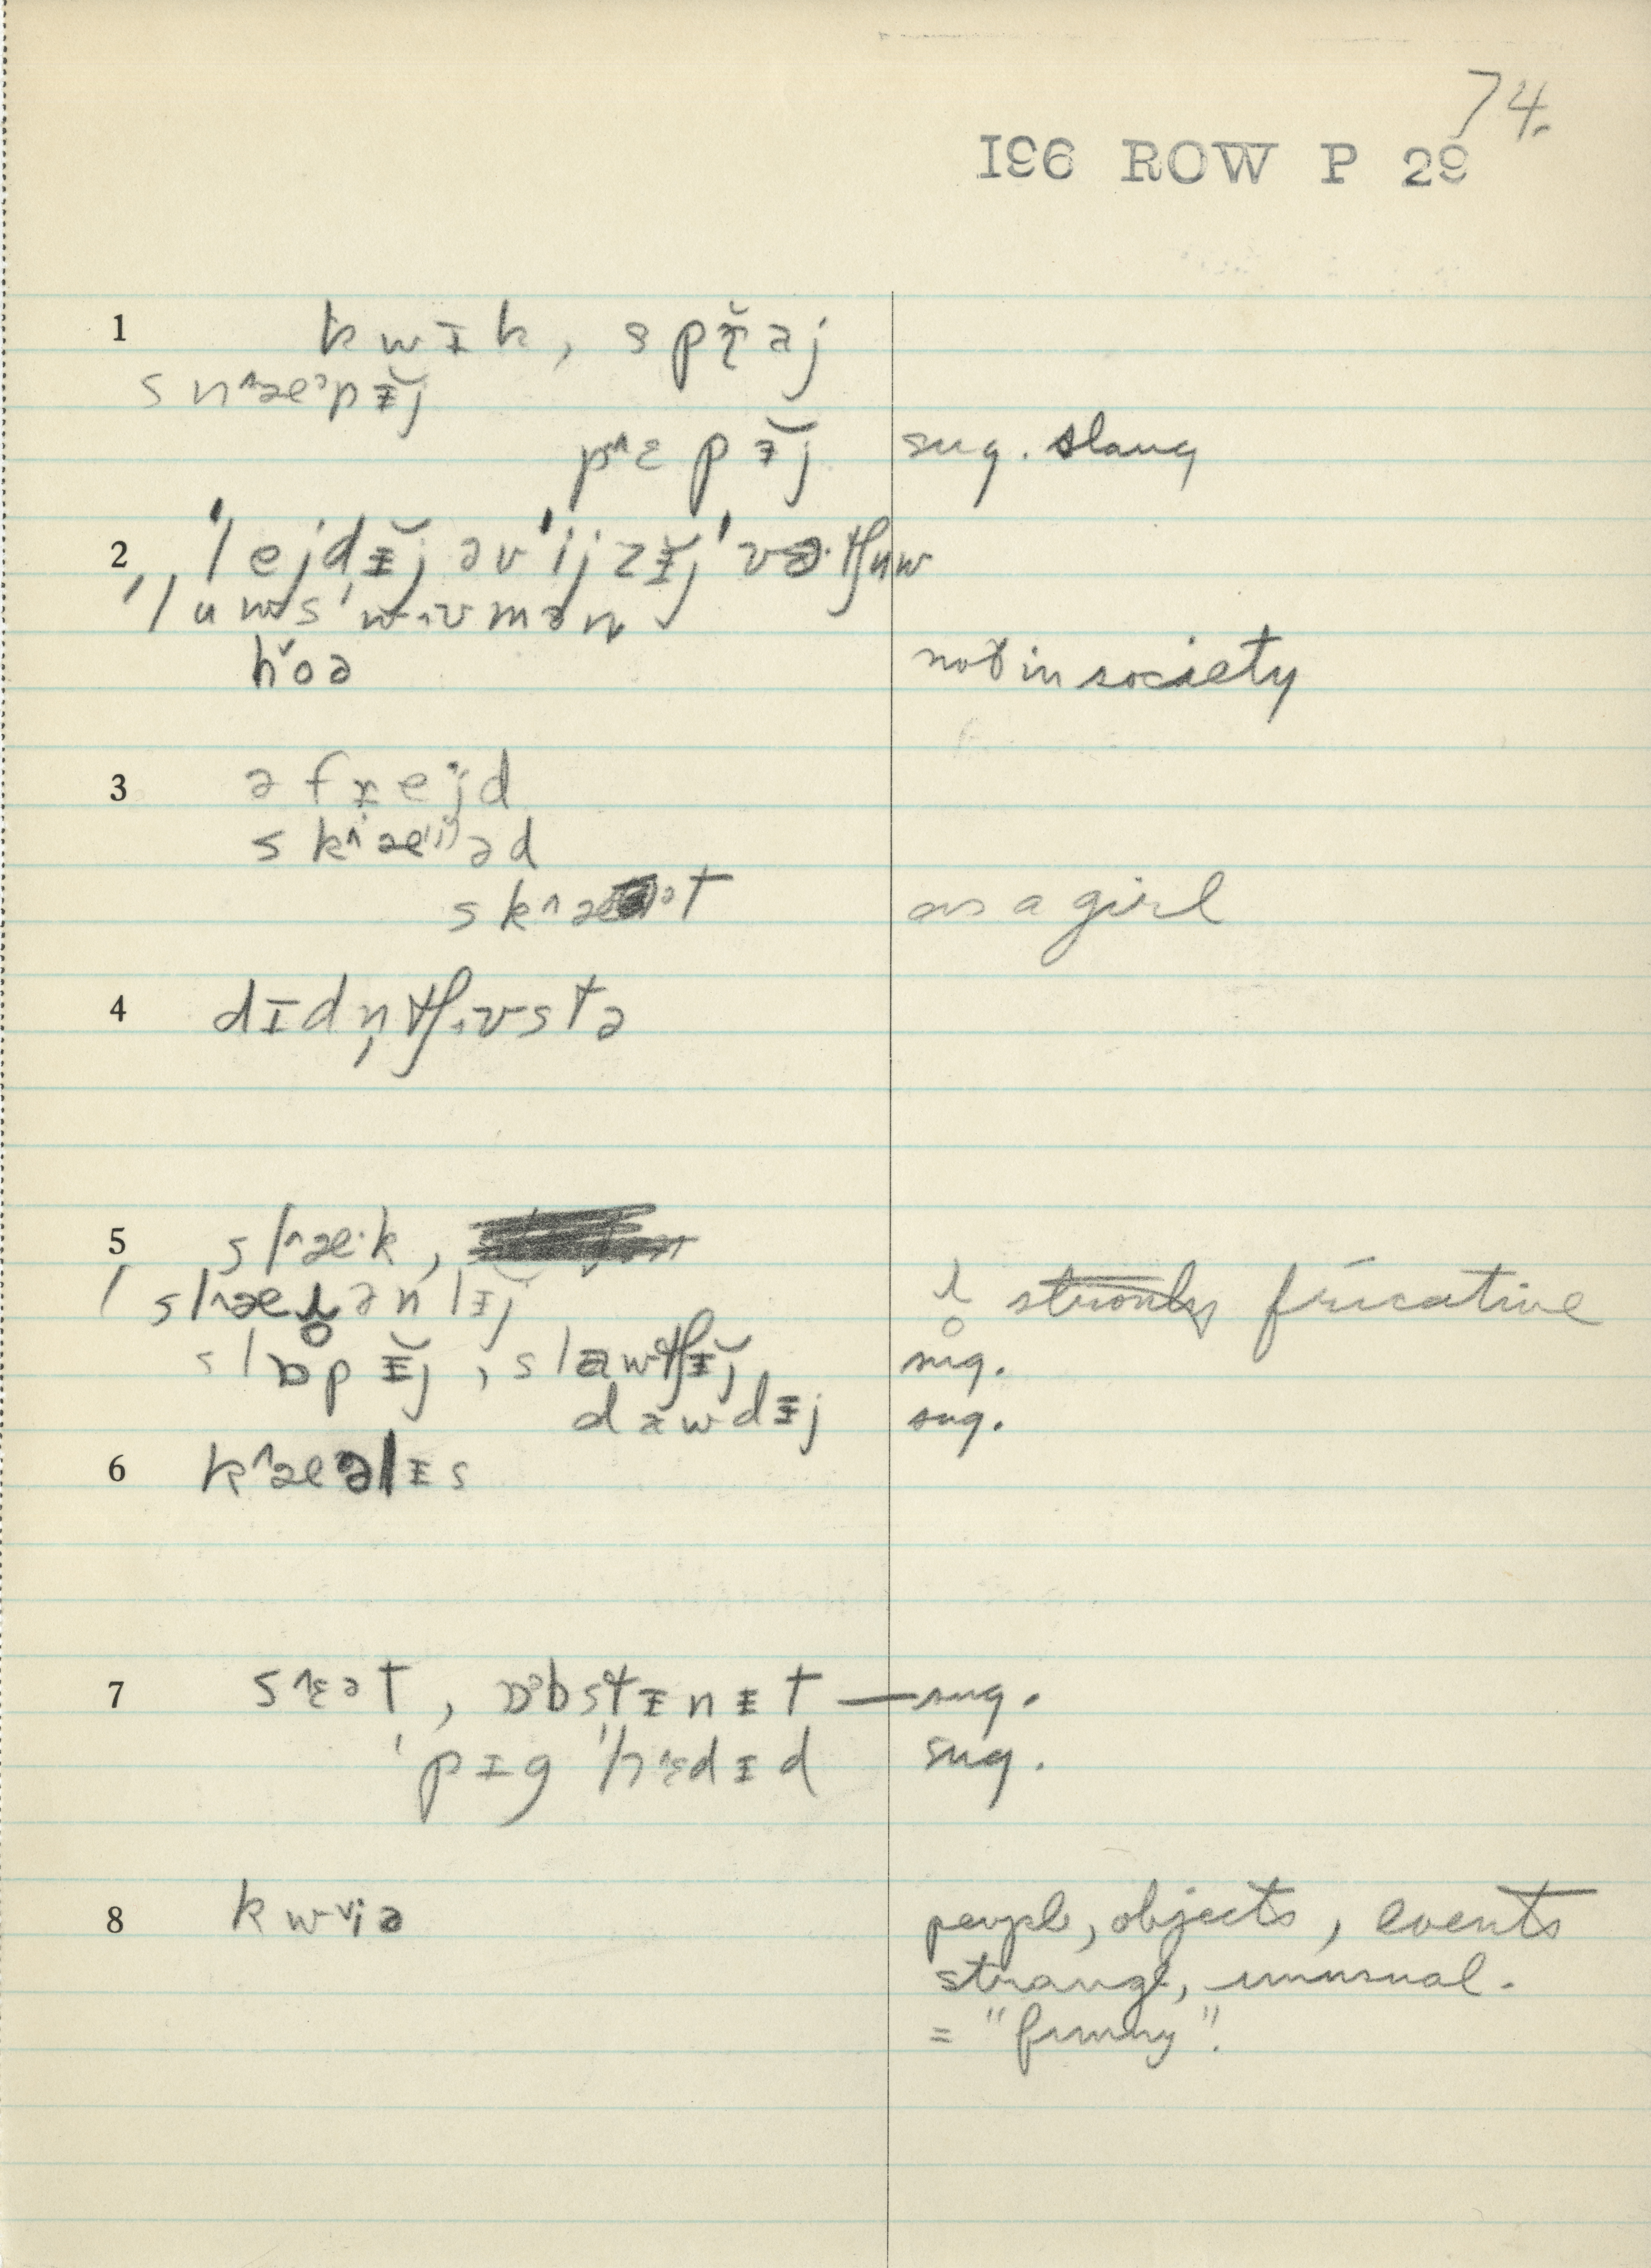 74.
196 ROW P 29
1 kwɪk, spɾ̆aj
sn^æᵊpɪ̆j
p^ɛpɪ̆j sug. slang
2 'lejdɪ̆j əv 'ijzɪ̆j 'vɜ·tʃuw
'luws 'wɪvmən
h˅oə not in society
3 əfɹejd
sk^æ⁽ⁱ⁾əd
sk^æᵊt as a girl
4 dɪdn̩ tʃɹʌstə
5 sl^æ·k,
sl^æɹ̥ənlɪ̆j ɹ̥ strongly fricative
slɒpɪ̆j, slawtʃɪ̆j sug.
dawdɪj sug.
6 k^æəlɪs
7 s^ɛət, ɒᵊbstɪnɪt — sug.
'pɪg 'h^ɛdɪd sug.
8 kw˅iə people, objects, events
strange, unusual.
= "funny".